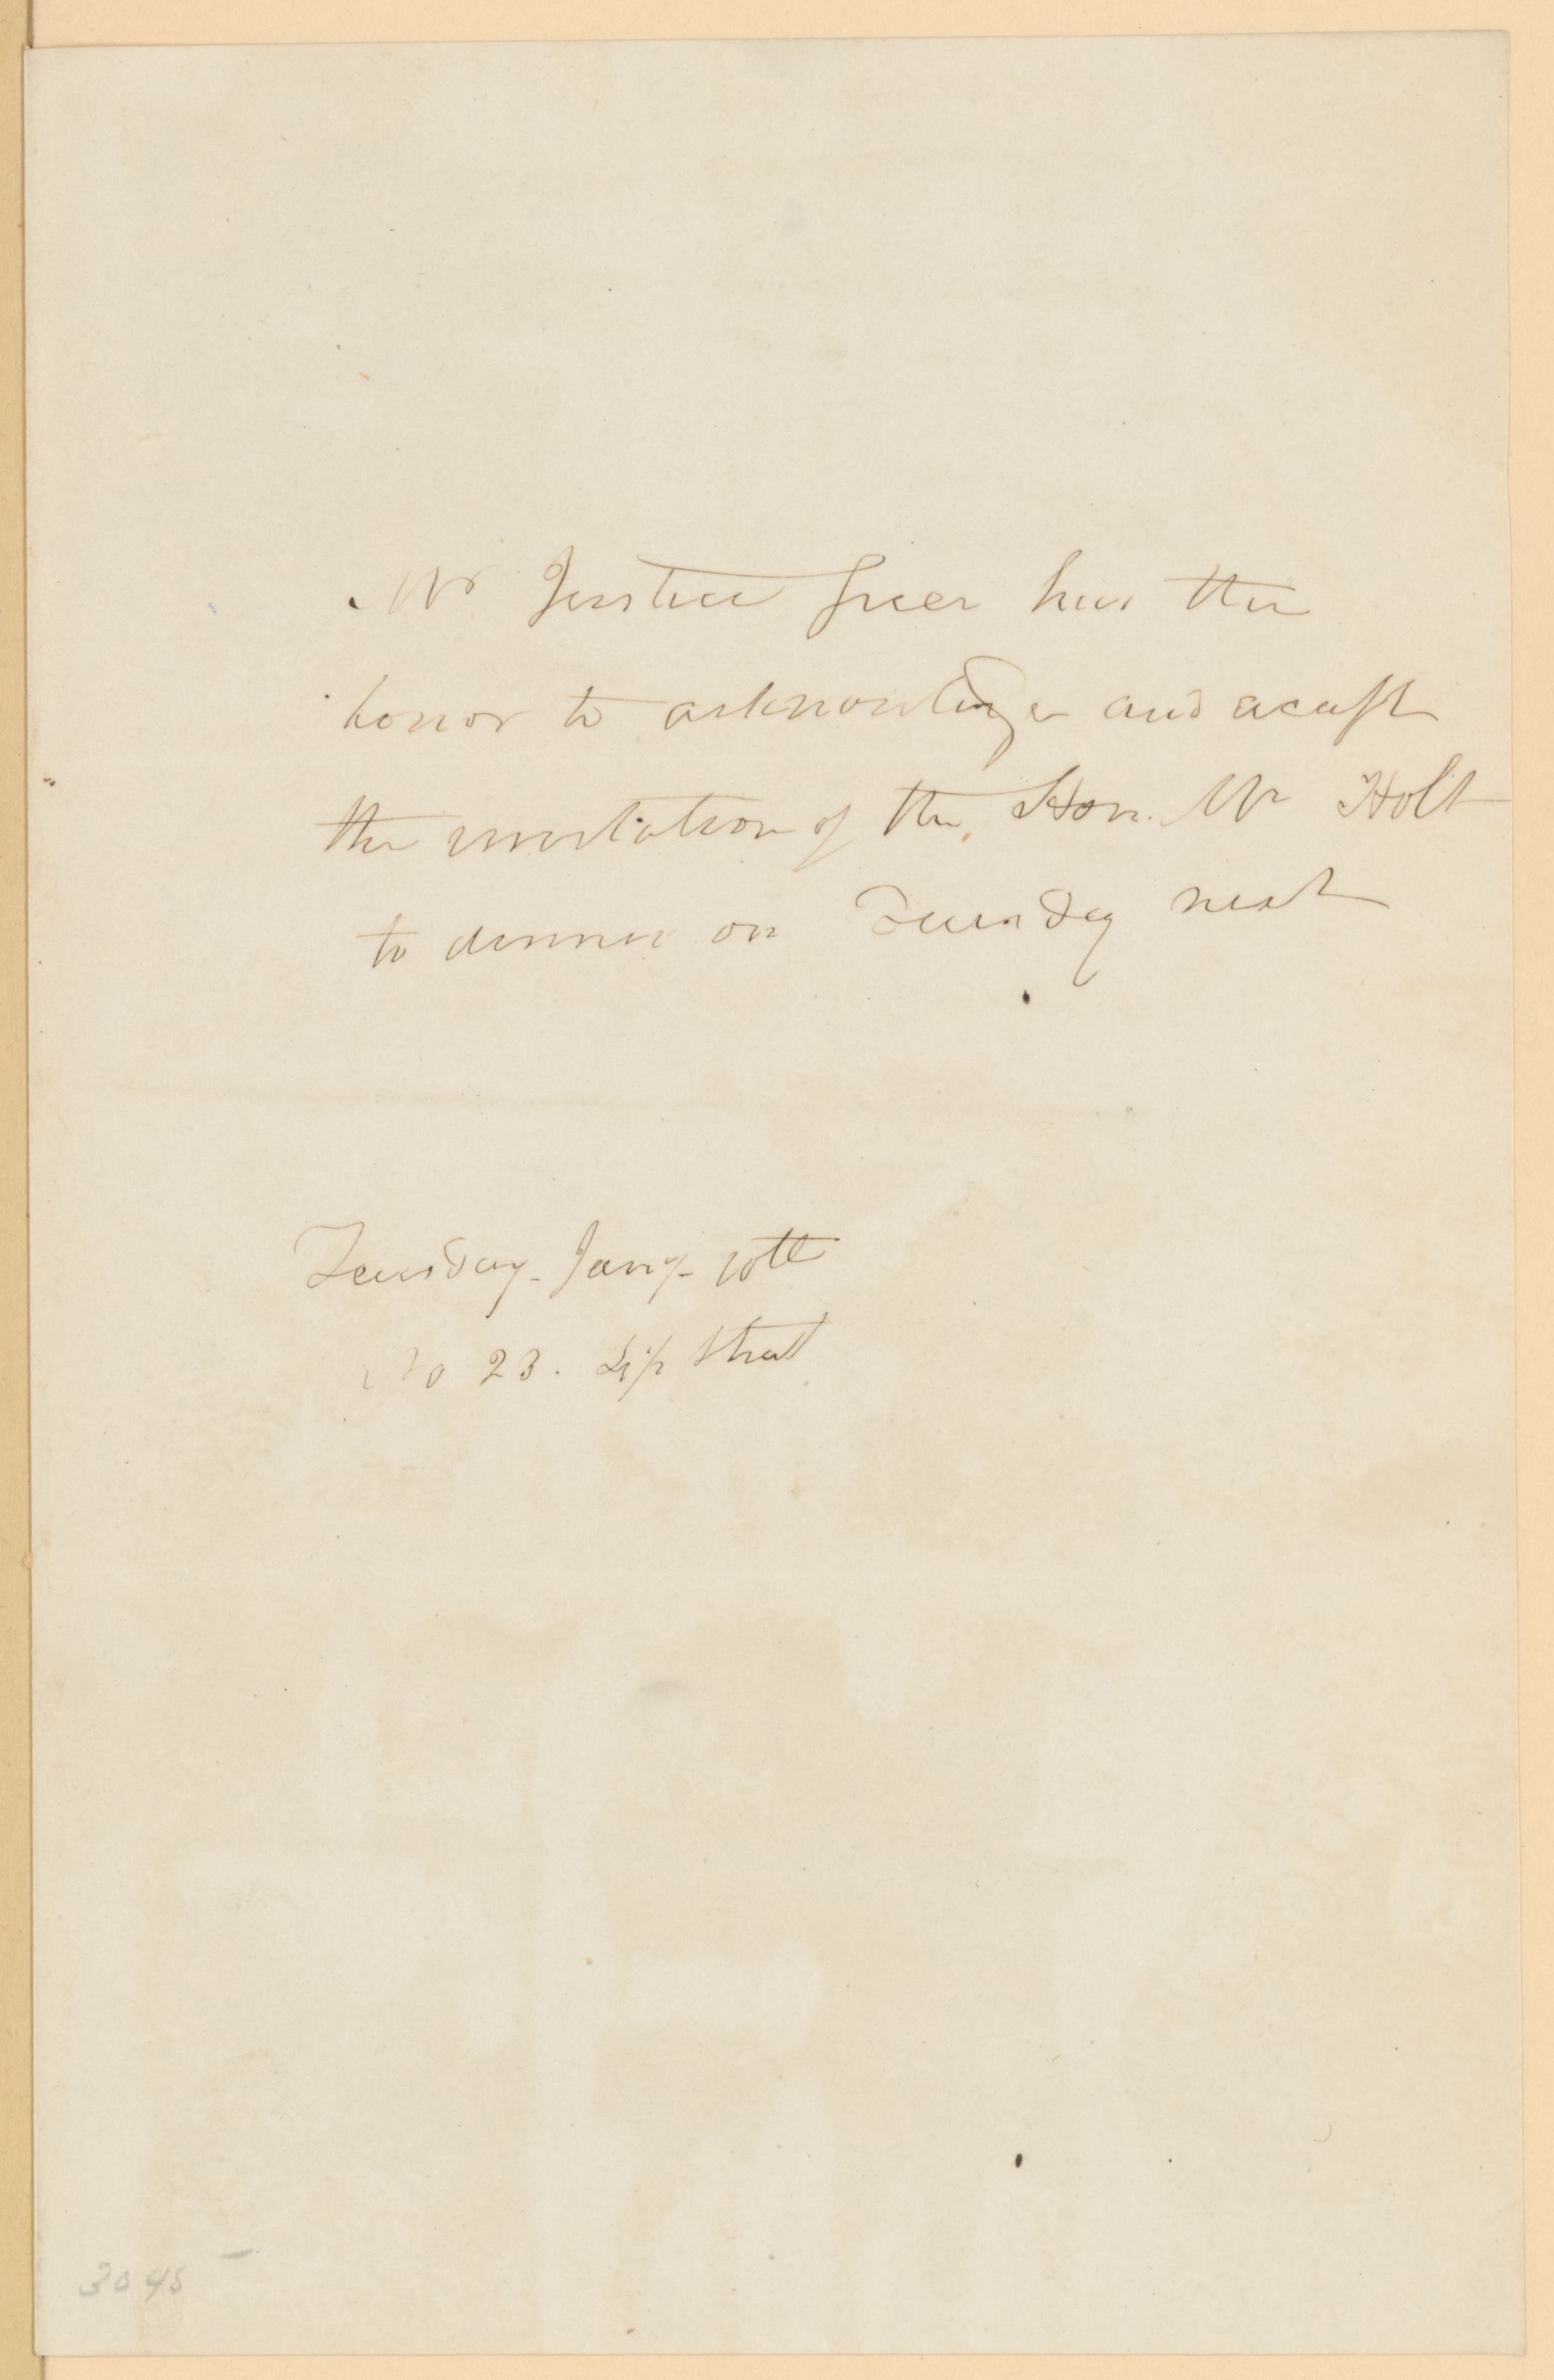 Mr Justice Grier has the
honor to acknowledge and accept
the invitation of the Hon. Mr Holt
to dinner on Tuesday next
Tuesday - Jany - 10th
No 23. 4½ Street
3045